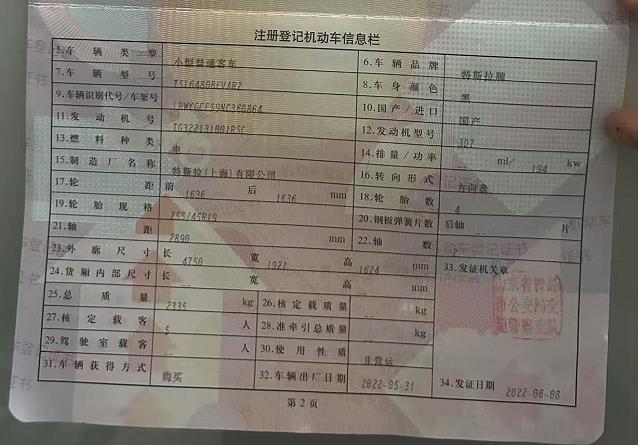 注册登记机动车信息栏
5.车辆类型 小型普通客车 6.车辆品牌 特斯拉牌
7.车辆型号 TSL6480BEVAR2 8.车身颜色 黑
9.车辆识别代号/车架号 10.国产/进口 国产
11.发动机号 TG322131001RSC 12.发动机型号 3D7
13.燃料种类 电 14.排量/功率 -- ml/ 194 kw
15.制造厂名称 特斯拉(上海)有限公司 16.转向形式 方向盘
17.轮距 前 1636 后 1636 mm 18.轮胎数 4
19.轮胎规格 255/45R19 20.钢板弹簧片数 后轴 -- 片
21.轴距 2890 mm 22.轴数 2
23.外廓尺寸 长 4750 宽 1921 高 1624 mm 33.发证机关章
24.货厢内部尺寸 长 -- 宽 -- 高 -- mm
25.总质量 2335 kg 26.核定载质量 -- kg
27.核定载客 5 人 28.准牵引总质量 -- kg
29.驾驶室载客 -- 人 30.使用性质 非营运
31.车辆获得方式 购买 32.车辆出厂日期 2022-05-31 34.发证日期 2022-06-08
第2页